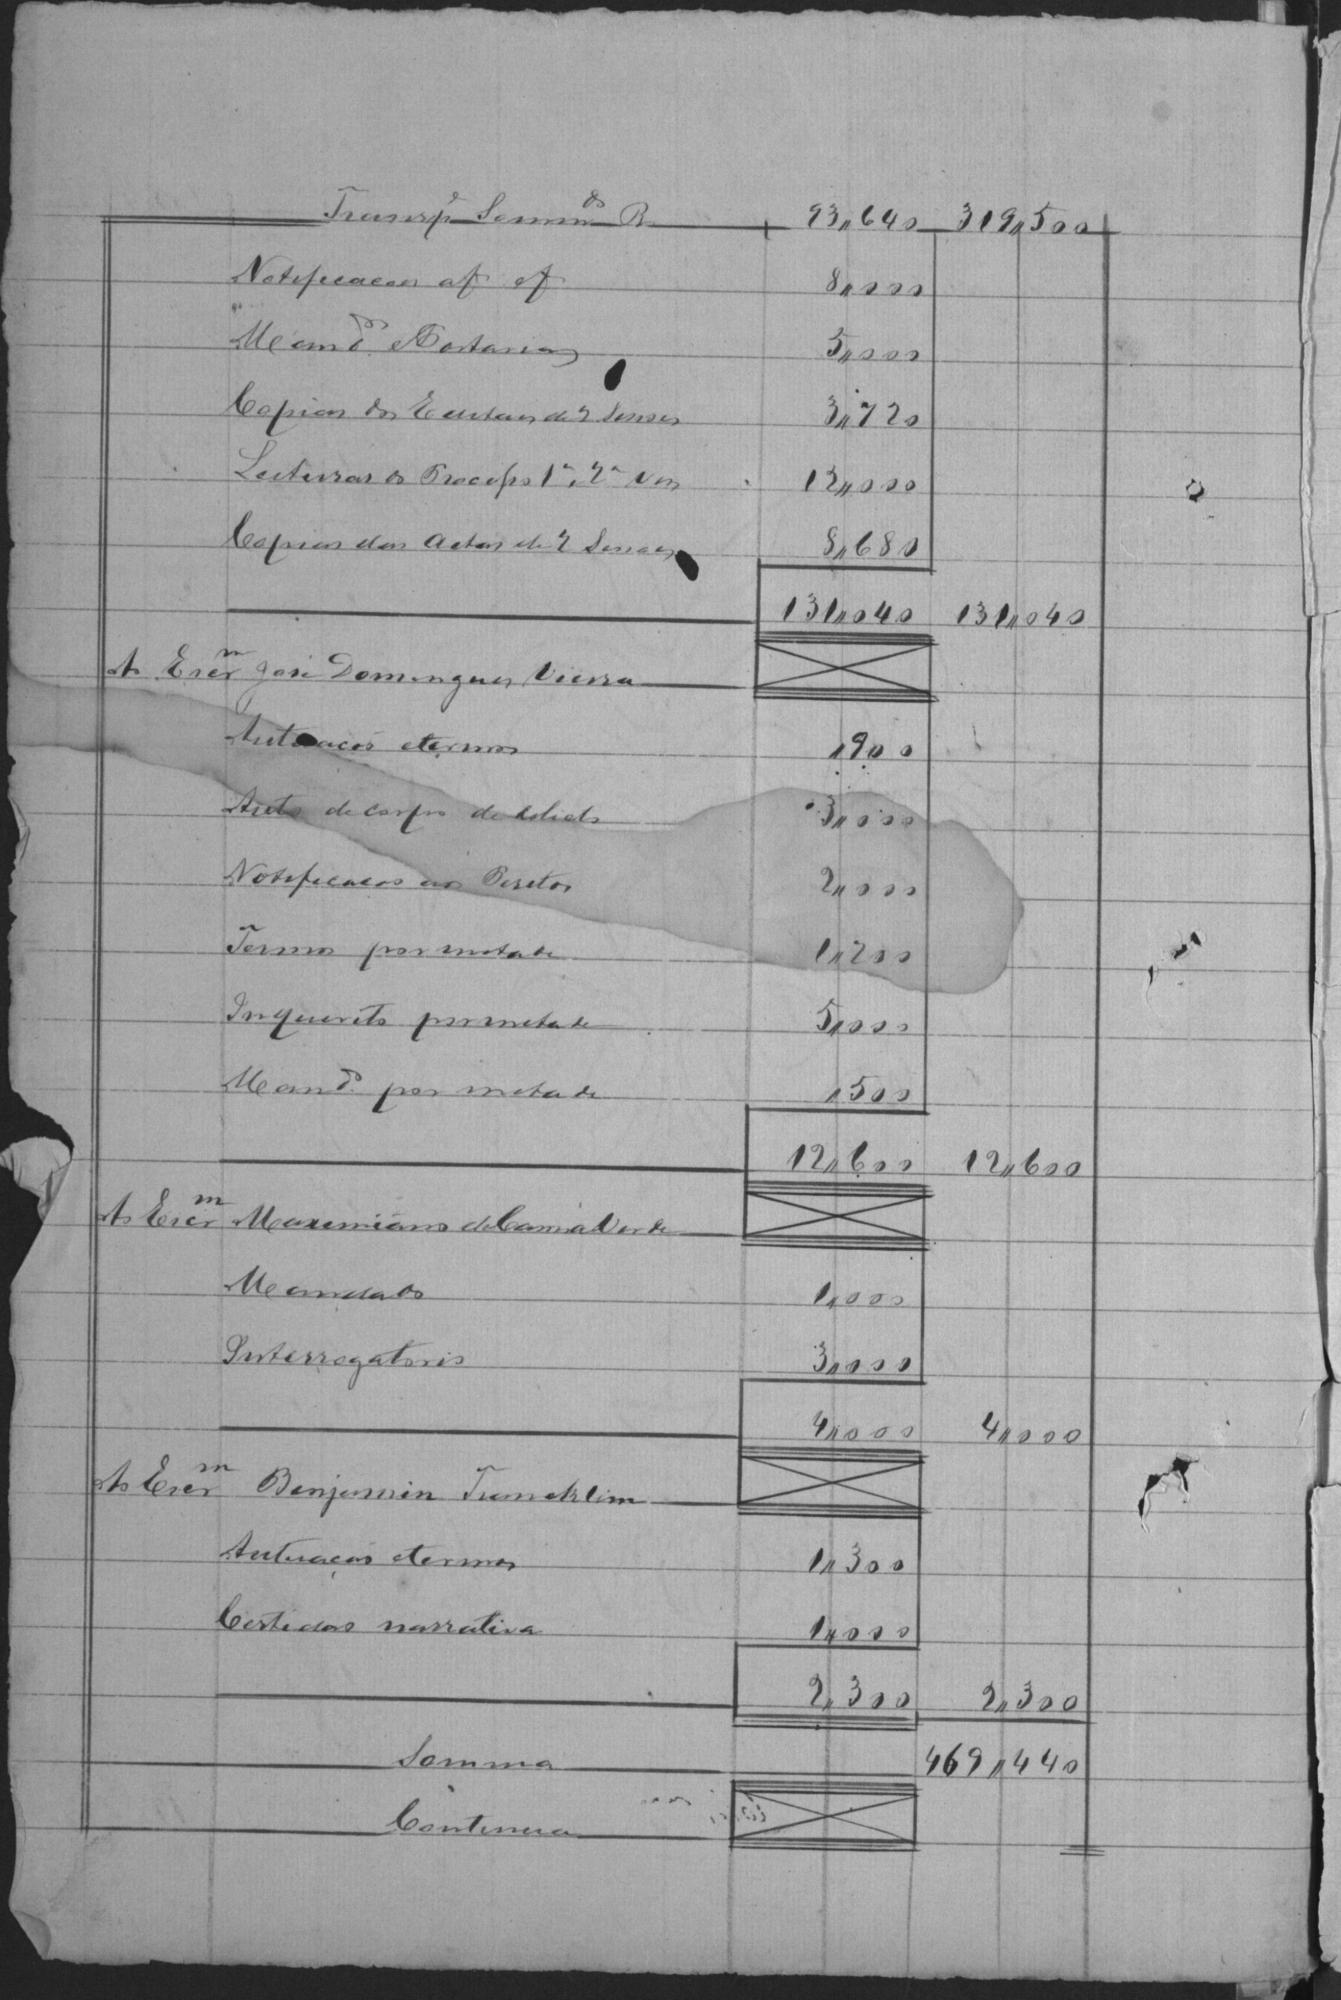 Transp.e Sommas R 93,,640 319,,500
Notificacoes af ef 8,,000
Mand.os e Portarias 5,,000
Copias dos Editaes de 2 Sessoes 3,,720
Leituras do Processo 1ª, 2ª Ves 12,,000
Copias das Actas de 2 Sessoes 8,,680
131,,040 131,,040
Ao Escr.m José Domingues Vieira
Autuacaó e termos ,,900
Auto de corpo de delicto 3,,000
Notificacaó aos Peritos 2,,000
Termos por metade 1,,200
Inquerito por metade 5,,000
Mand.o por metade ,,500
12,,600 12,,600
Ao Escr.m Maximiano de Verde
Mandado 1,,000
Interrogatorio 3,,000
4,,000 4,,000
Ao Escr.m Benjamin
Autuaçaó e termos 1,,300
Certidaó narrativa 1,,000
2,,300 2,,300
Somma 469,,440
Continua